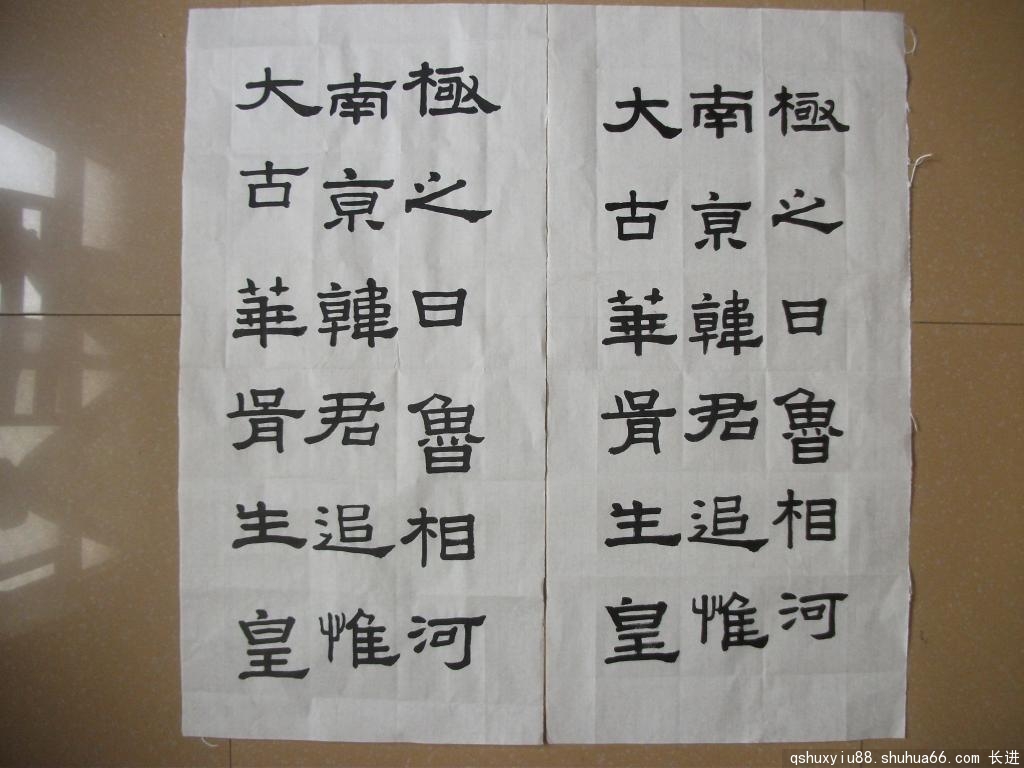 極之日魯相河
南京韓君追惟
大古華胥生皇
極之日魯相河
南京韓君追惟
大古華胥生皇
qshuxyiu88.shuhua66.com 长进